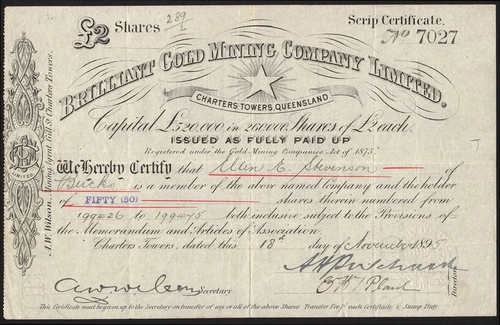 £2 Shares 289/1
Scrip Certificate.
No 7027
BRILLIANT GOLD MINING COMPANY LIMITED.
CHARTERS TOWERS, QUEENSLAND
Capital £520,000 in 260,000 Shares of £2 each.
ISSUED AS FULLY PAID UP
Registered under the Gold Mining Companies Act of 1875.
We Hereby Certify that Allen C. Stevenson of
Bucks is a member of the above named Company and the holder
of FIFTY (50) shares therein numbered from
199426 to 199475 both inclusive subject to the Provisions of
the Memorandum and Articles of Association.
Charters Towers, dated this 18th day of November 1895
Secretary.
Directors
This Certificate must be given up to the Secretary on transfer of any or all of the above Shares Transfer Fee for each Certificate & Stamp Duty.
A.W. Wilson, Mining Agent, Gill St. Charters Towers.
LIMITED